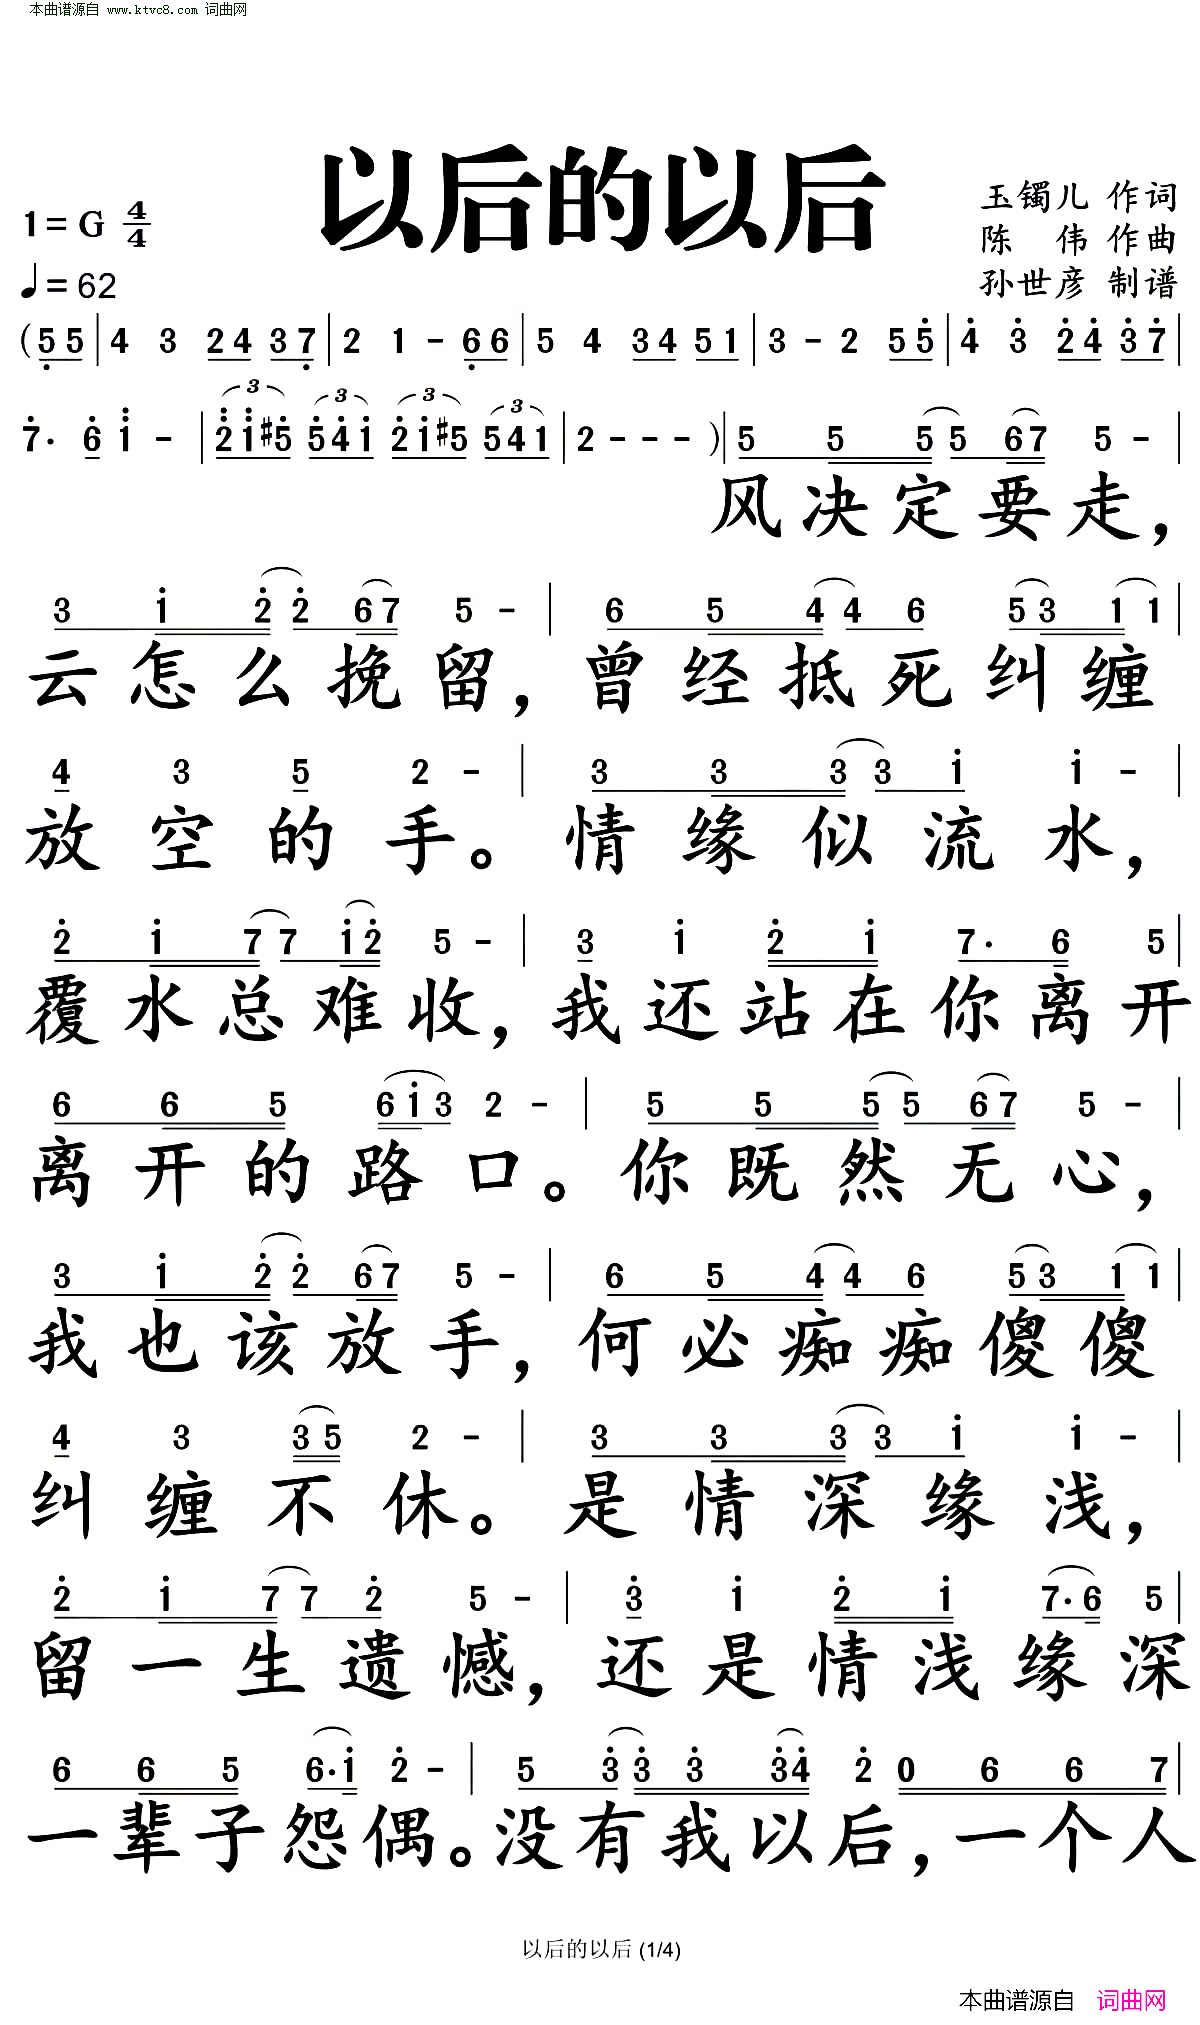 本曲谱源自 www.ktvc8.com 词曲网
以后的以后
1=G 4/4
♩=62
玉镯儿 作词
陈 伟 作曲
孙世彦 制谱
(5 5 | 4 3 2 4 3 7 | 2 1 - 6 6 | 5 4 3 4 5 1 | 3 - 2 5 5 | 4 3 2 4 3 7 |
7. 6 1 - | 2 1 #5 5 4 1 2 1 #5 5 4 1 | 2 - - - ) | 5 5 5 5 6 7 5 - |
风决定要走，
3 1 2 2 6 7 5 - | 6 5 4 4 6 5 3 1 1 |
云怎么挽留，曾经抵死纠缠
4 3 5 2 - | 3 3 3 3 1 1 - |
放空的手。情缘似流水，
2 1 7 7 1 2 5 - | 3 1 2 1 7. 6 5
覆水总难收，我还站在你离开
6 6 5 6 1 3 2 - | 5 5 5 5 6 7 5 - |
离开的路口。你既然无心，
3 1 2 2 6 7 5 - | 6 5 4 4 6 5 3 1 1 |
我也该放手，何必痴痴傻傻
4 3 3 5 2 - | 3 3 3 3 1 1 - |
纠缠不休。是情深缘浅，
2 1 7 7 2 5 - | 3 1 2 1 7. 6 5 |
留一生遗憾，还是情浅缘深
6 6 5 6. 1 2 - | 5 3 3 3 3 4 2 0 6 6 7 |
一辈子怨偶。没有我以后，一个人
以后的以后 (1/4)
本曲谱源自 词曲网